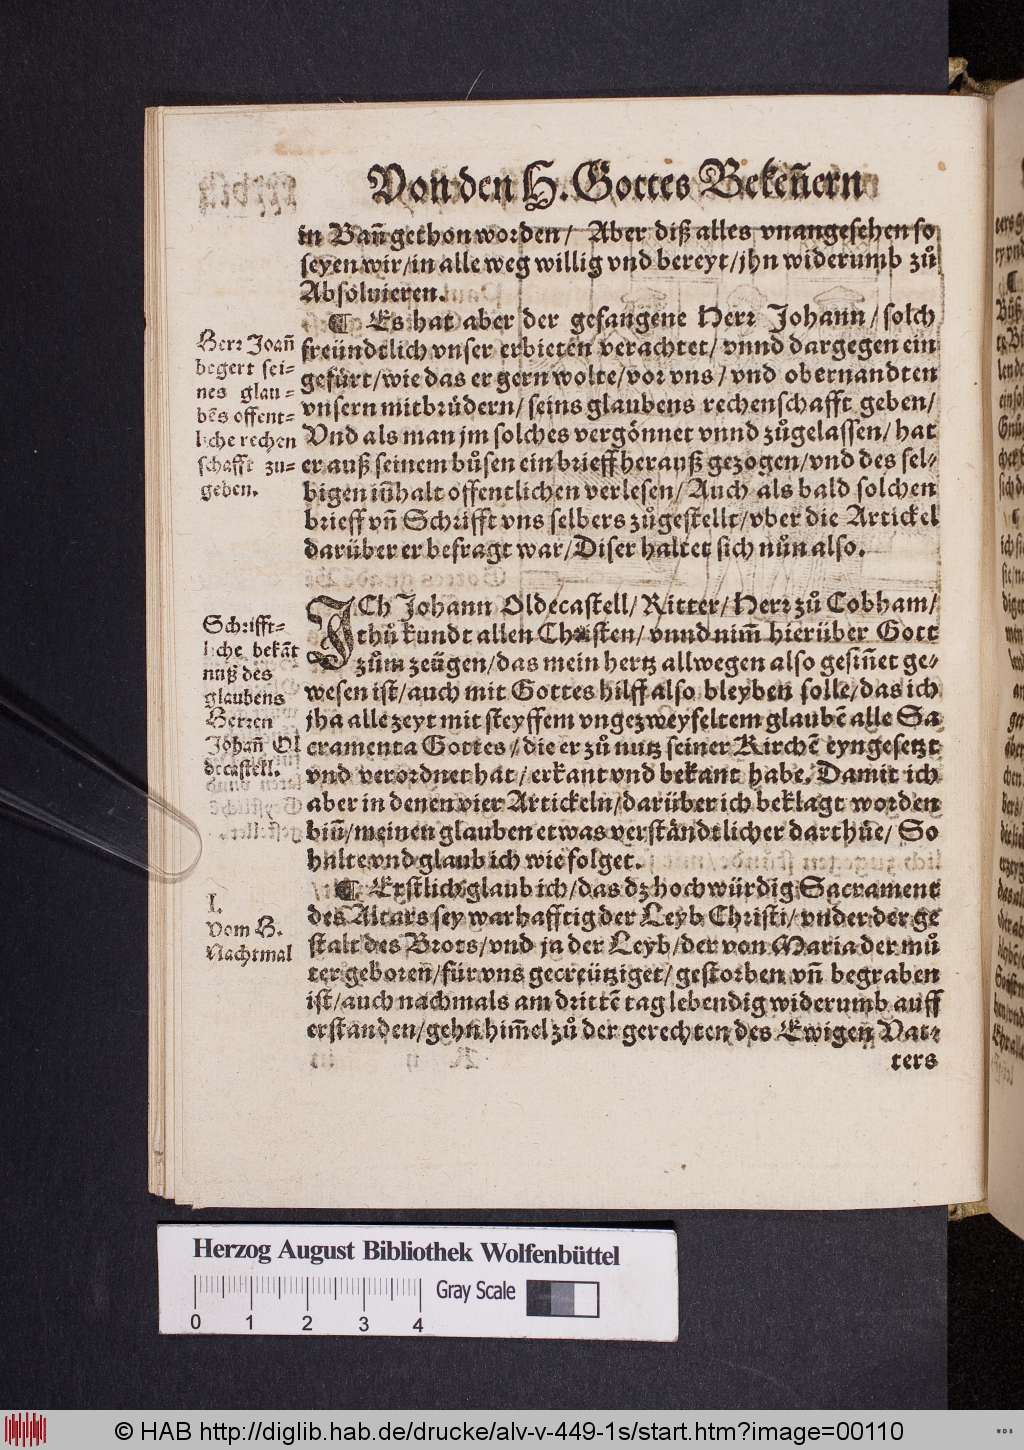 Von den H. Gottes Bekeñern
in Bañ gethon worden/ Aber diß alles vnangesehen so
seyen wir/in alle weg willig vnd bereyt/jhn widerumb zů
Absoluieren.
¶ Es hat aber der gefangene Herr Johann/ solch
freündtlich vnser erbieten verachtet/ vnnd dargegen ein
gefürt/wie das er gern wolte/vor vns/ vnd obernandten
vnsern mitbrüdern/ seins glaubens rechenschafft geben/
Vnd als man jm solches vergönnet vnnd zůgelassen/ hat
er auß seinem bůsen ein brieff herauß gezogen/vnd des sel-
bigen iñhalt offentlichen verlesen/ Auch als bald solchen
brieff vñ Schrifft vns selbers zůgestellt/vber die Artickel
darüber er befragt war/Diser haltet sich nůn also.
Herr Joañ
begert sei-
nes glau-
bẽs offent-
liche rechen
schafft zu-
geben.
ICh Johann Oldecastell/ Ritter/ Herr zů Cobham/
thů kundt allen Christen/ vnnd nim̃ hierüber Gott
zům zeügen/das mein hertz allwegen also gesiñet ge-
wesen ist/auch mit Gottes hilff also bleyben solle/das ich
jha alle zeyt mit steyffem vngezweyfeltem glaubẽ alle Sa
cramenta Gottes/die er zů nutz seiner Kirchẽ eyngesetzt
vnd verordnet hat/ erkant vnd bekant habe. Damit ich
aber in denen vier Artickeln/darüber ich beklagt worden
biñ/meinen glauben etwas verständtlicher darthüe/ So
halte vnd glaub ich wie folget.
Schrifft-
liche bekãt
nuß des
glaubens
Herren
Johañ Ol
decastell.
¶ Erstlich glaub ich/das dz hochwürdig Sacrament
des Altars sey warhafftig der Leyb Christi/ vnder der ge
stalt des Brots/vnd ja der Leyb/der von Maria der můͤ
ter geboren/für vns gecreütziget/ gestorben vñ begraben
ist/auch nachmals am drittẽ tag lebendig widerumb auff
erstanden/gehn him̃el zů der gerechten des Ewigen Vat-
ters
I.
Vom H.
Nachtmal
Herzog August Bibliothek Wolfenbüttel
0 1 2 3 4
Gray Scale
© HAB http://diglib.hab.de/drucke/alv-v-449-1s/start.htm?image=00110